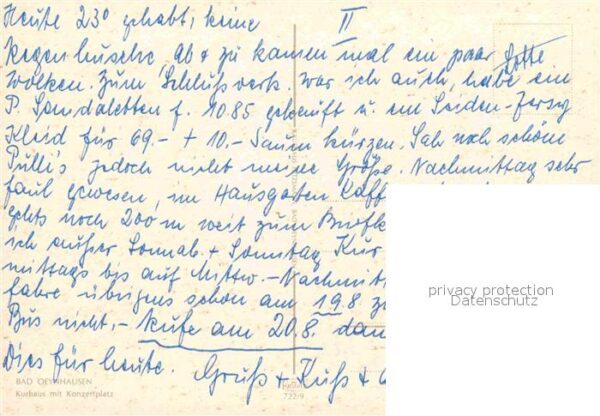 Heute 23° gehabt, keine II
Regenhusche, Ab + zu kamen mal ein paar
Wolken. Zum Schlußverk. war ich auch, habe ein
P. Sandaletten f. 10.85 gekauft u. ein Seiden-Jersey
Kleid für 69.- + 10.- Saum kürzen. Sah noch schöne
Pulli's jedoch nicht meine Größe. Nachmittag sehr
faul gewesen, im Hausgarten Kaff
gehts noch 200 m weit zum Briefk
ich außer Sonnab. + Sonntag Kur
mittags bis auf Mittw.- Nachmit
fahre übrigens schon am 19.8 z
Bus nicht.- Rufe am 20.8. dan
Dies für heute. Gruß + Kuß +
privacy protection
Datenschutz
BAD OEYNHAUSEN
Kurhaus mit Konzertplatz
722/9